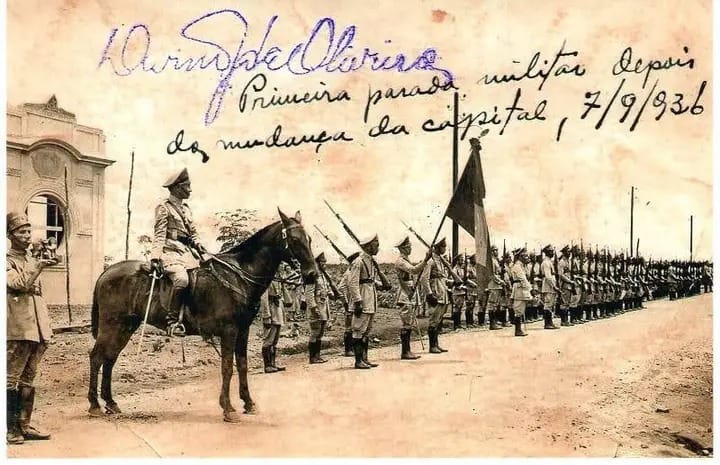 Durino de Oliveira
Primeira parada militar depois
da mudança da capital, 7/9/936